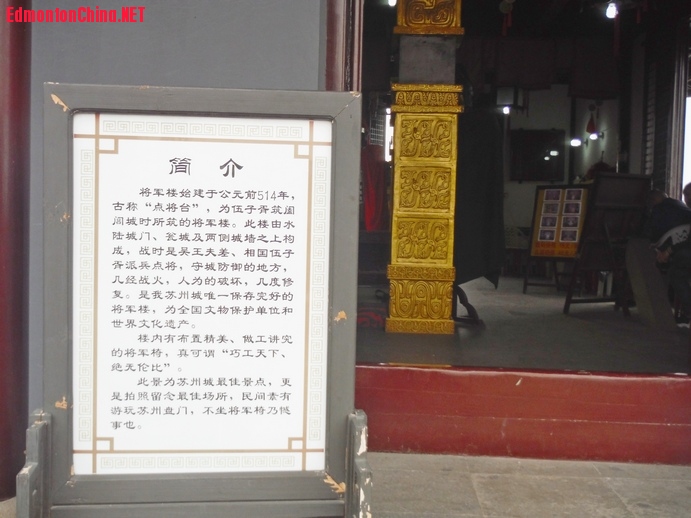 EdmontonChina.NET
简 介
将军楼始建于公元前514年,
古称“点将台”,为伍子胥筑阖
闾城时所筑的将军楼。此楼由水
陆城门、瓮城及两侧城墙之上构
成,战时是吴王夫差、相国伍子
胥派兵点将,守城防御的地方,
几经战火,人为的破坏,几度修
复。是我苏州城唯一保存完好的
将军楼,为全国文物保护单位和
世界文化遗产。
楼内有布置精美、做工讲究
的将军椅,真可谓“巧工天下、
绝无伦比”。
此景为苏州城最佳景点,更
是拍照留念最佳场所,民间素有
游玩苏州盘门,不坐将军椅乃憾
事也。